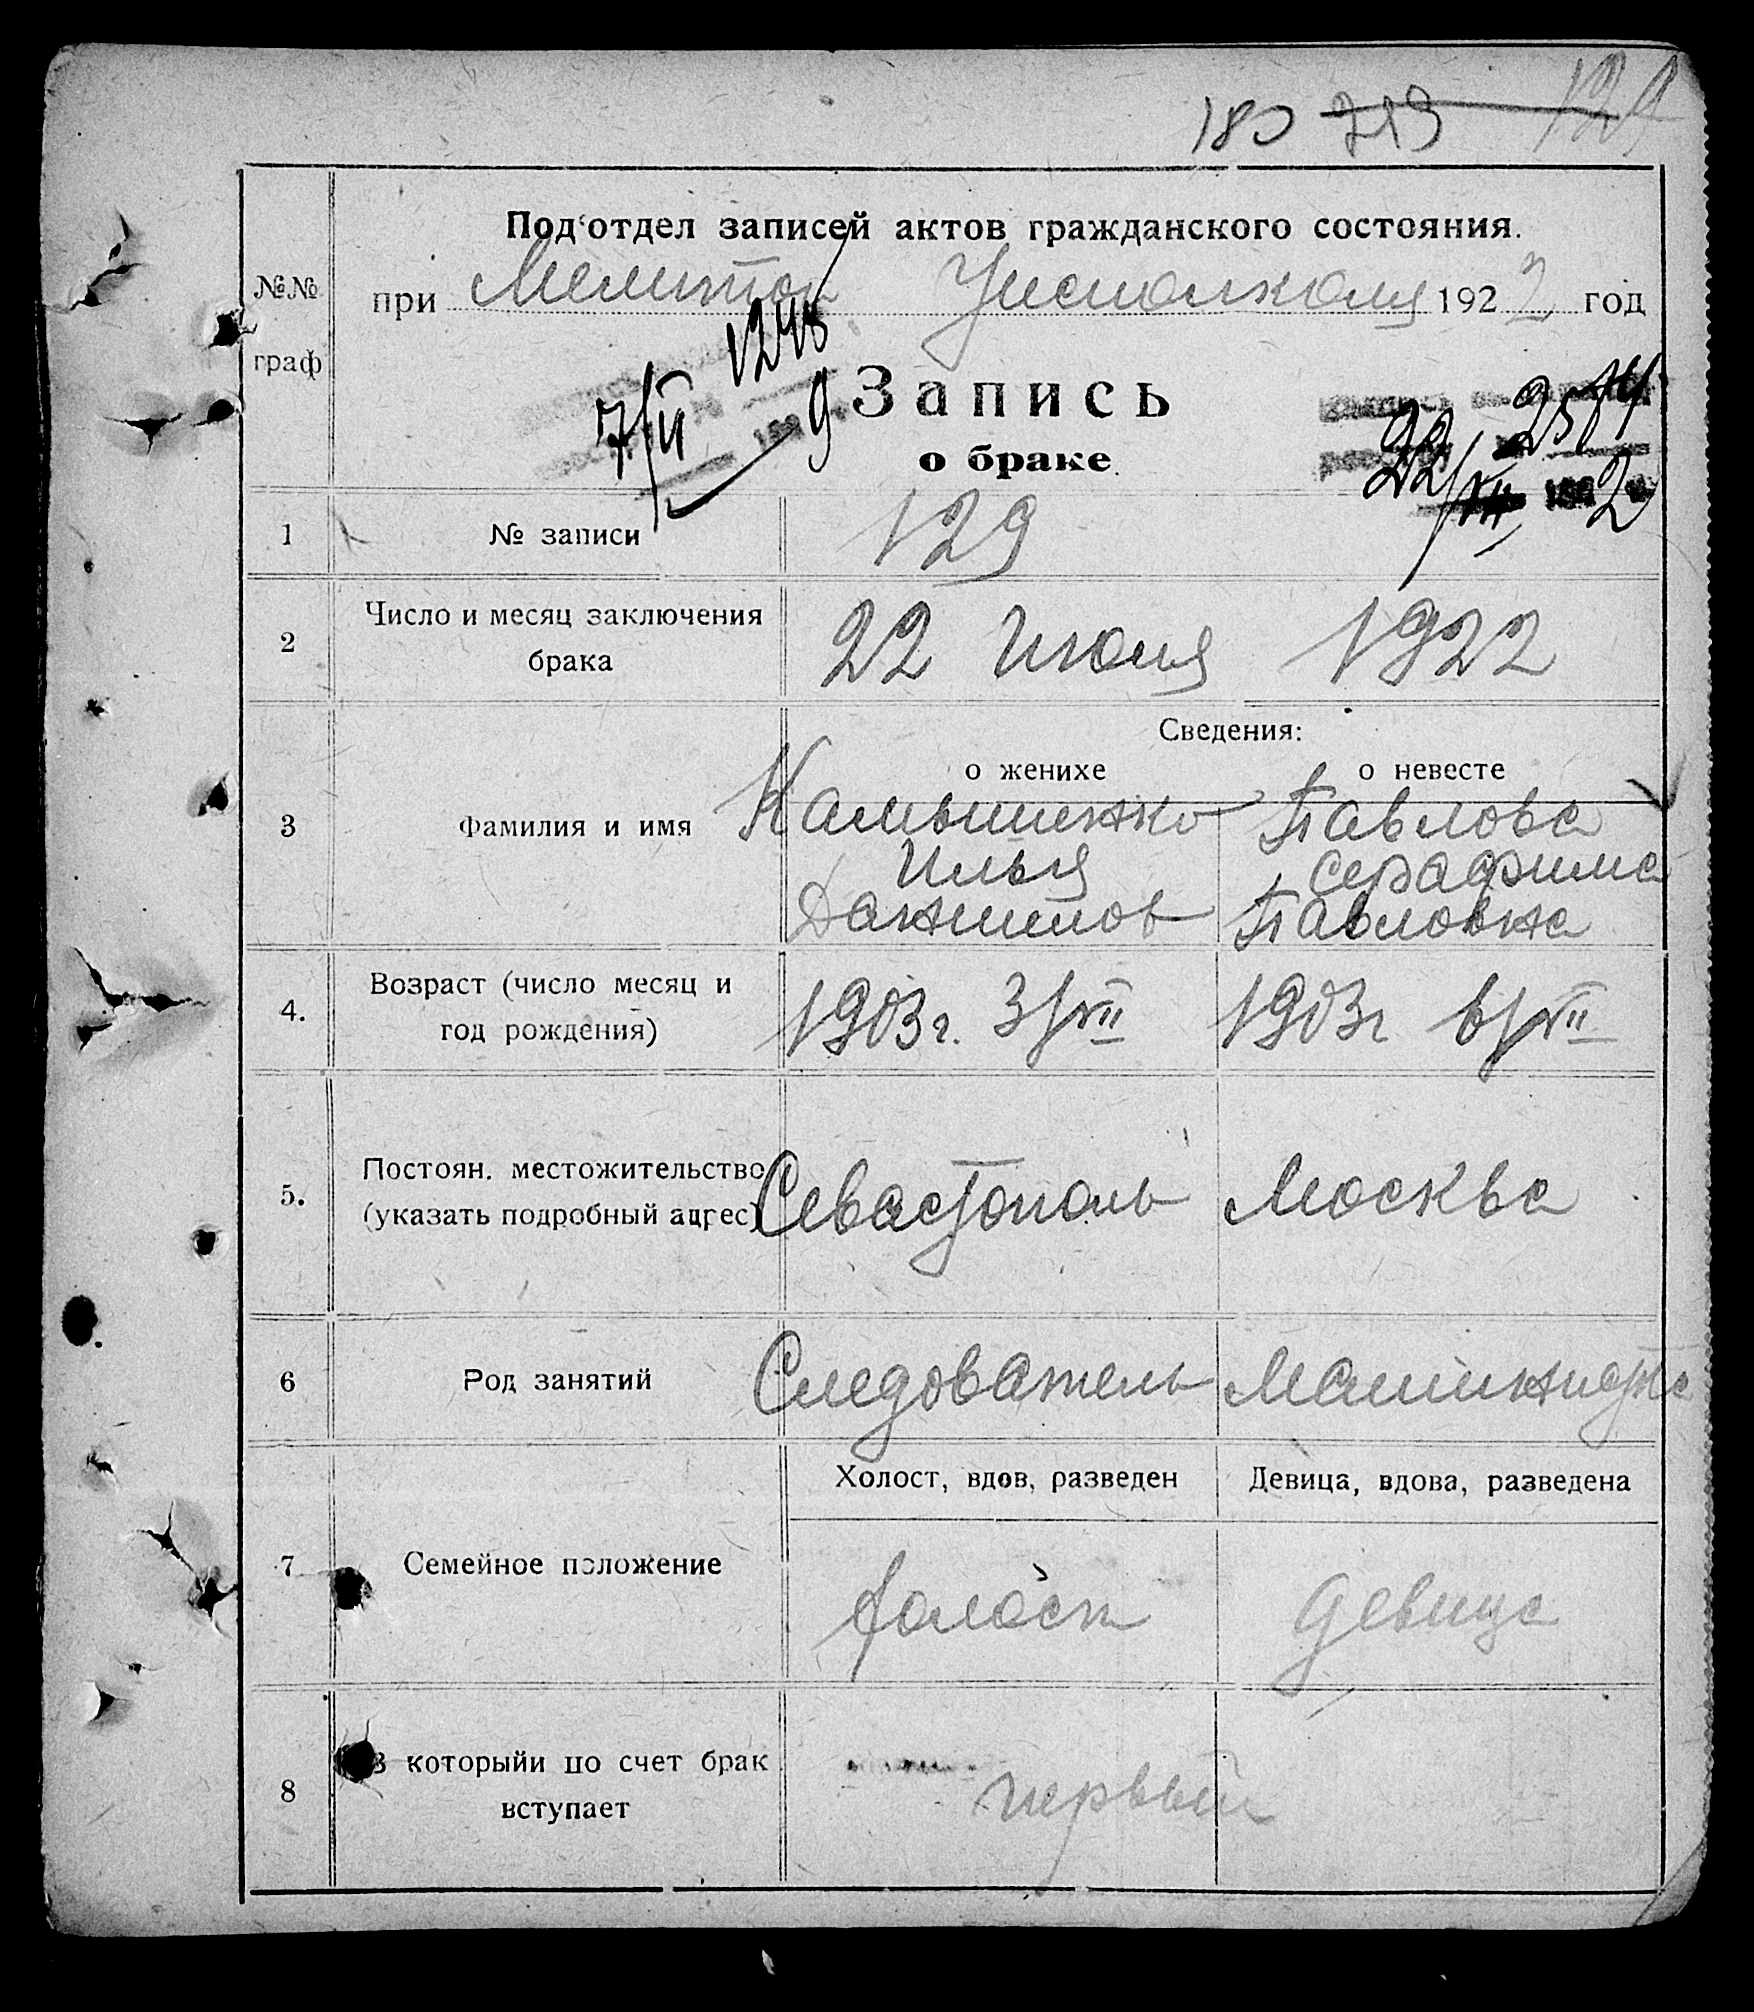 180 713 129
Под'отдел записей актов гражданского состояния.
№№
граф
при Мелитоп Уисполкому 1922 год
7/II 1248 9
Запись
о браке.
2574
22/VII 1922
1 № записи 129
2 Число и месяц заключения
брака
22 Июля 1922
Сведения:
о женихе о невесте
3 Фамилия и имя
Камышенко Павлова
Илья Серафима
Данилов Павловна
4. Возраст (число месяц и
год рождения)
1903 г. 3/VII 1903 г 6/VII
5. Постоян. местожительство
(указать подробный адрес)
Севастополь Москва
6 Род занятий Следователь Машинистка
Холост, вдов, разведен Девица, вдова, разведена
7 Семейное положение
холост девица
8 В которыйи по счет брак
вступает
первый